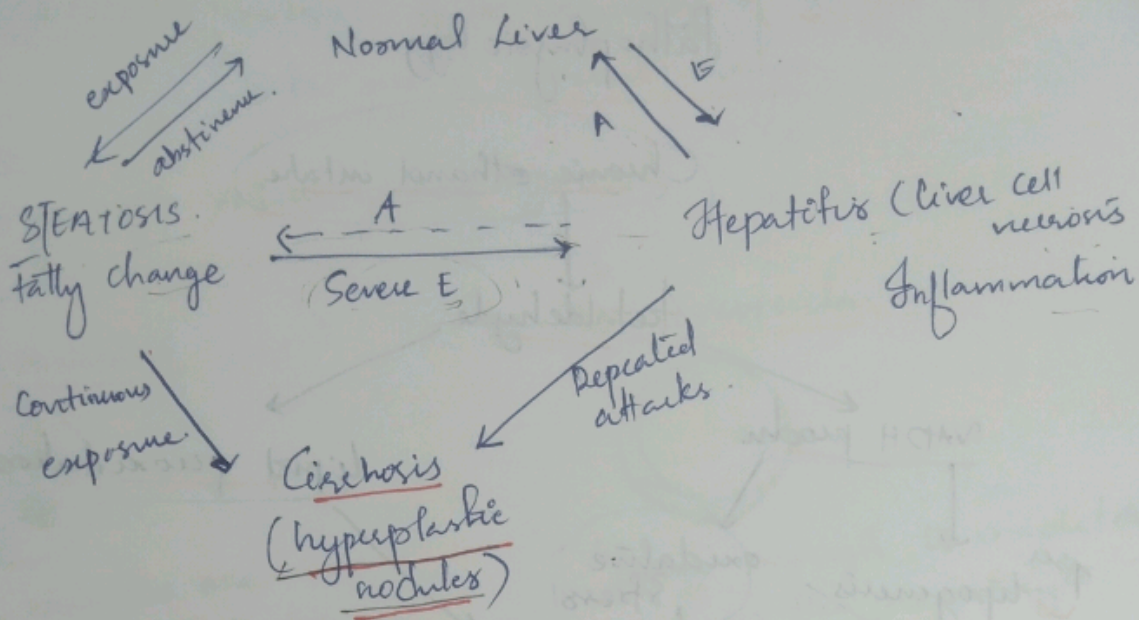 Normal Liver
exposure
abstinence.
E
A
STEATOSIS.
Fatty change
A
Severe E
Hepatitis (liver cell
necrosis
Inflammation
Continuous
exposure.
Repeated
attacks.
Cirrhosis
(hyperplastic
nodules)